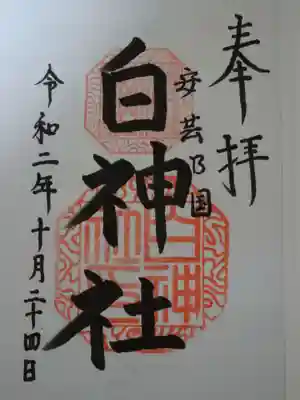 奉拝
安芸乃国
白神社
令和二年十月二十四日
白神社印